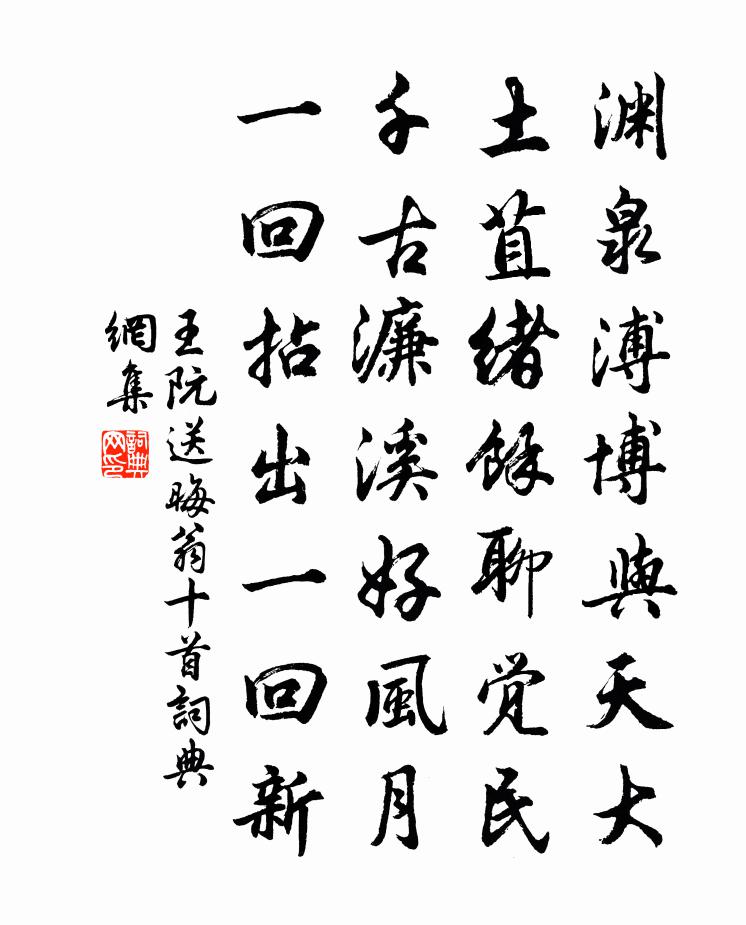 渊泉溥博與天大
土苴緖餘聊覚民
千古濂溪好風月
一回拈出一回新
王阮送晦翁十首詞典
網集
詞典
网印